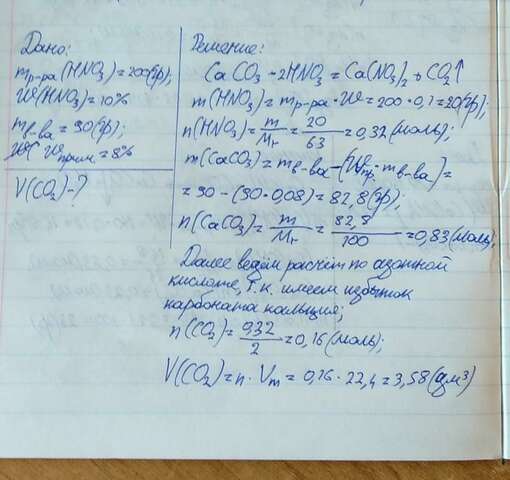 Дано:
m р-ра (HNO3) = 200(гр);
W(HNO3) = 10%
m в-ва = 90(гр);
W прим = 8%
V(CO2) - ?
Решение:
CaCO3 + 2HNO3 = Ca(NO3)2 + CO2↑
m(HNO3) = m р-ра · W = 200 · 0,1 = 20(гр);
n(HNO3) = m/Mr = 20/63 = 0,32(моль);
m(CaCO3) = m в-ва - (W пр · m в-ва) =
= 90 - (90 · 0,08) = 82,8(гр);
n(CaCO3) = m/Mr = 82,8/100 = 0,83(моль);
Далее ведём расчёт по азотной
кислоте, т.к. имеем избыток
карбоната кальция;
n(CO2) = 0,32/2 = 0,16(моль);
V(CO2) = n · Vm = 0,16 · 22,4 = 3,58(дм³)